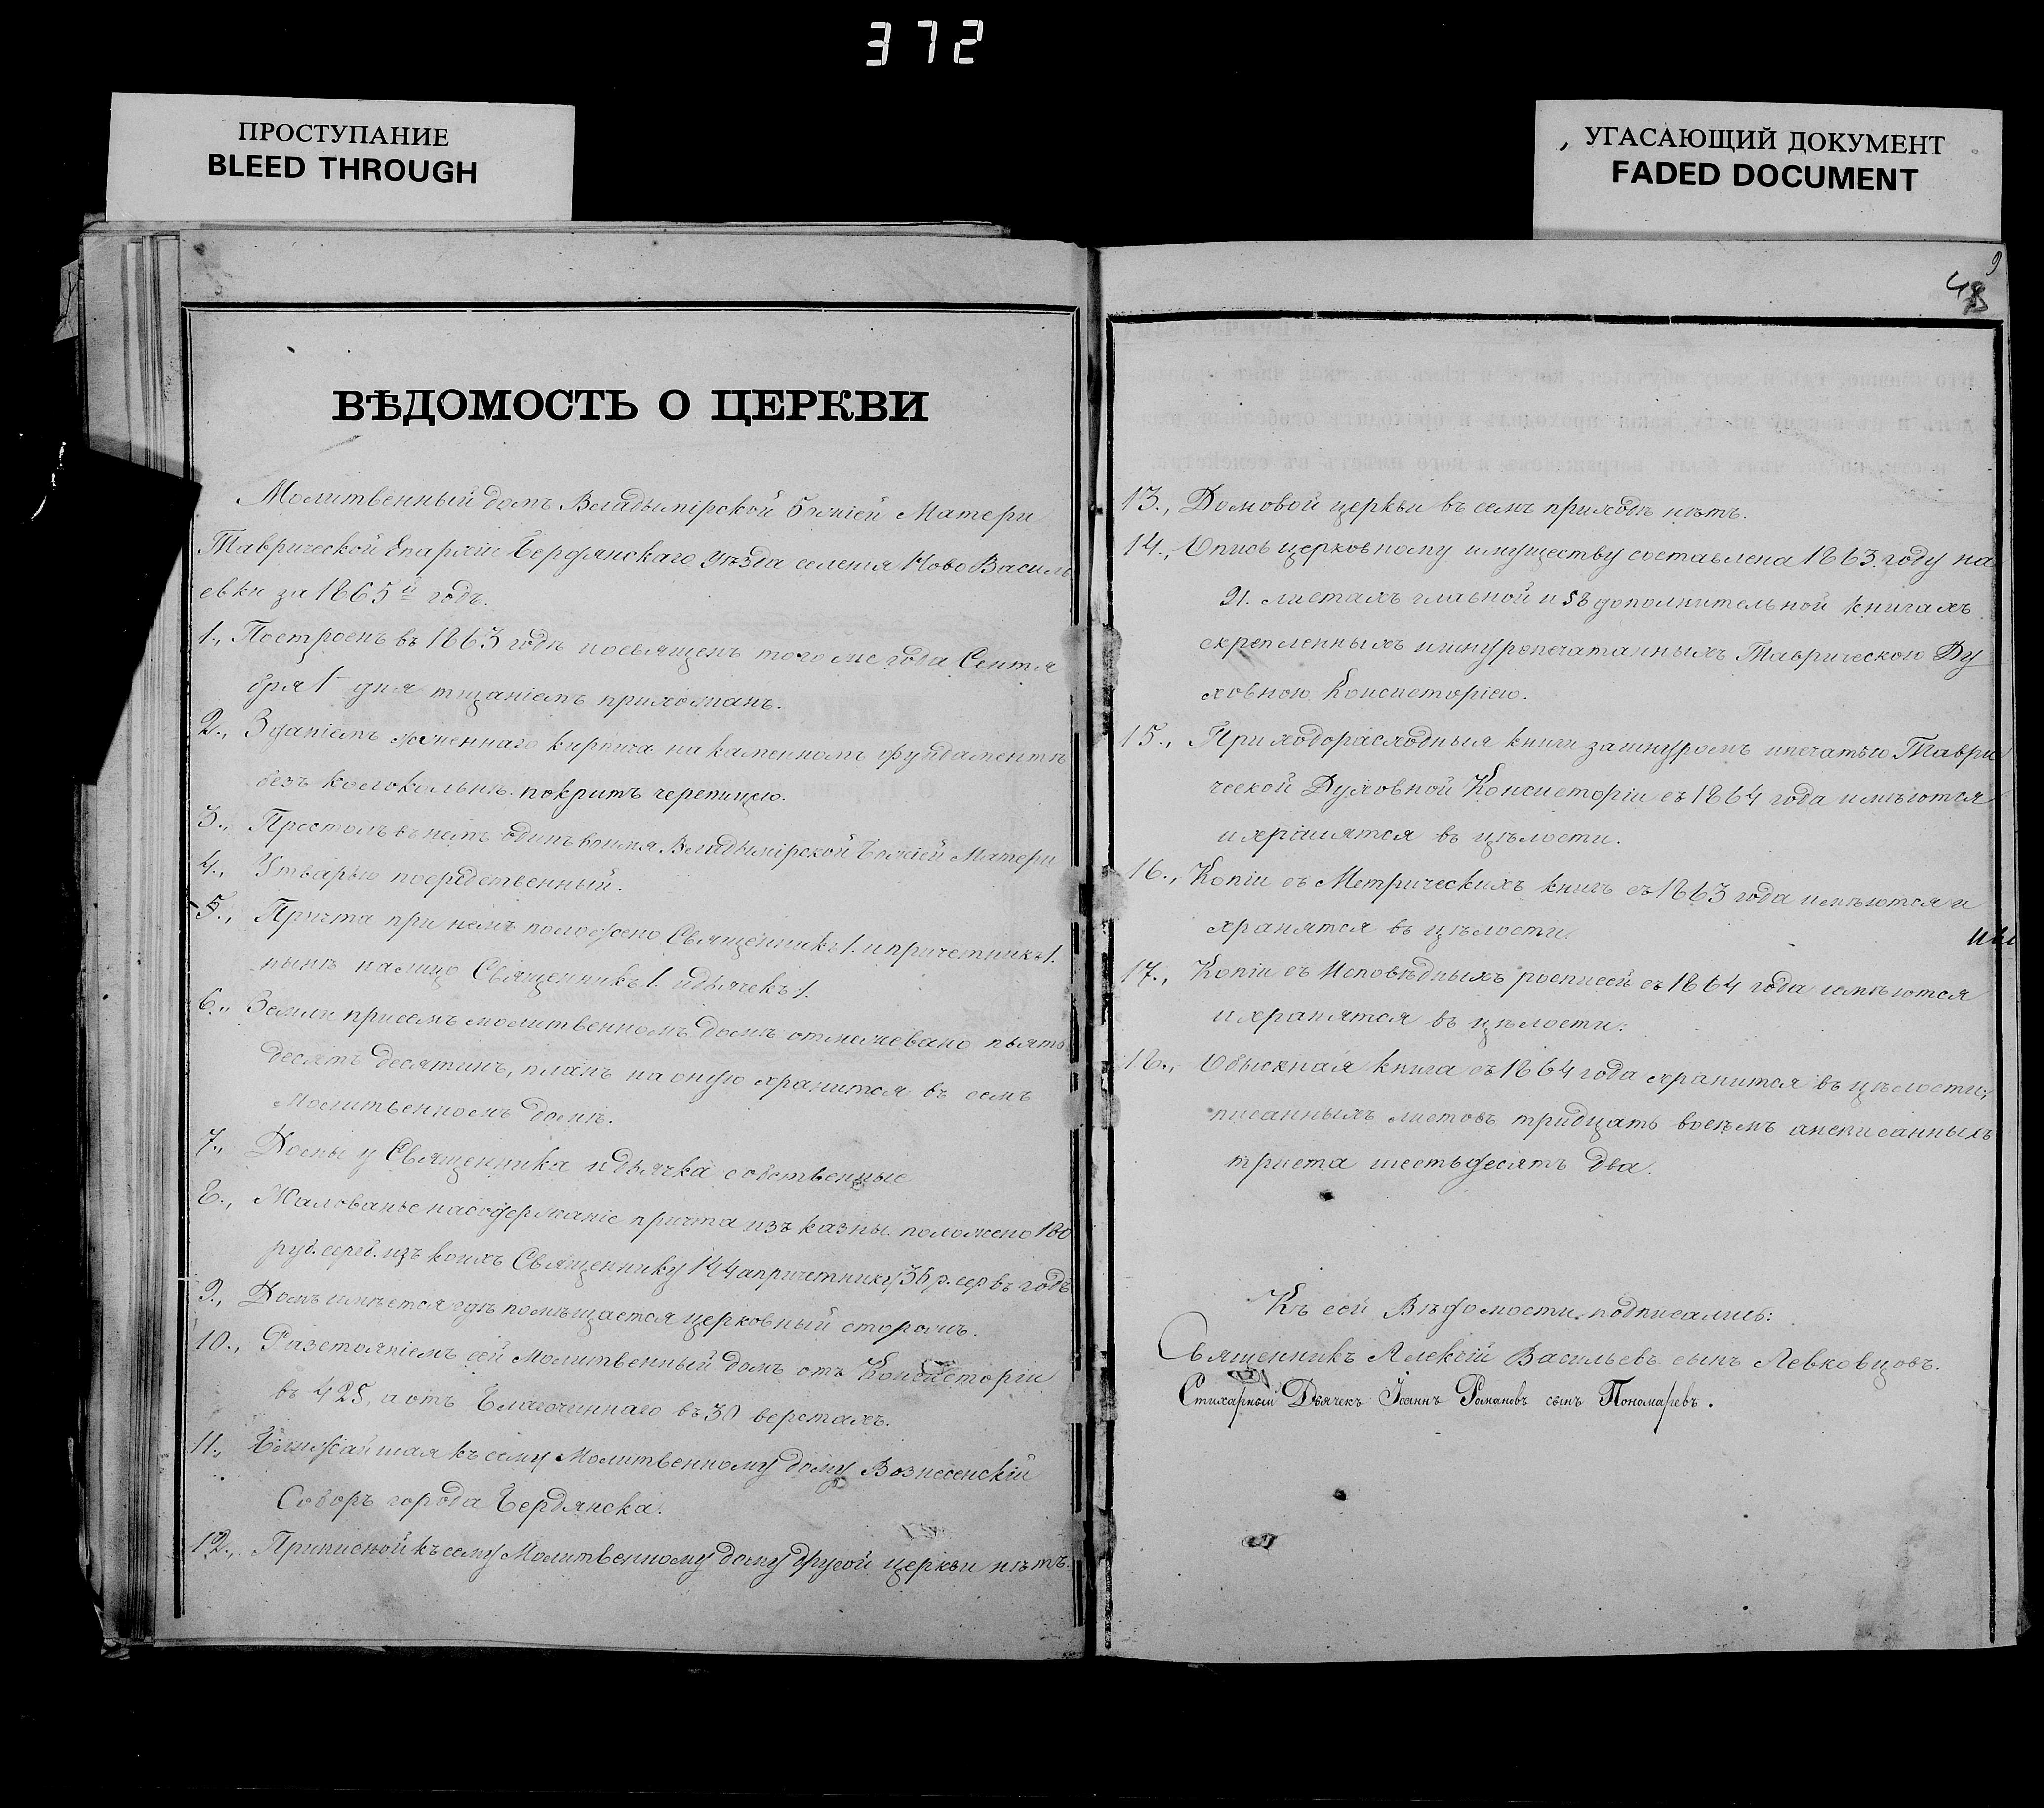 372
ПРОСТУПАНИЕ
BLEED THROUGH
УГАСАЮЩИЙ ДОКУМЕНТ
FADED DOCUMENT
ВѢДОМОСТЬ О ЦЕРКВИ
Молитвенный домъ Владымірской Божіей Матери
Таврической Епархіи Бердянскаго уѣзда селенія Ново Василь
евки за 1865й годъ.
1., Построенъ въ 1863 годѣ посвященъ того же года Сентя
бря 1 дня тщаніемъ прихожанъ.
2., Зданіемъ жженнаго кирпича на каменномъ фундаментѣ
безъ колокольнѣ. покритъ черепицею.
3., Престолъ въ немъ одинъ во имя Владымірской Божіей Матери
4., Утварью посредственный.
5., Причта при немъ положено Священникъ 1. и причетникъ 1.
нынѣ налицо Священникъ 1. и дьячекъ 1.
6., Земли при семъ молитвенномъ домѣ отмежевано пьять
десятъ десятинъ, планъ на оную хранится въ семъ
Молитвенномъ домѣ.
7., Домы у Священника и дьячка собственные
8., Жалованье на содержаніе причта изъ казны положено 180
руб. сереб. изъ коихъ Священнику 144 а причетнику 36 р. сер въ годъ
9., Домъ имѣется гдѣ помѣщается церковный сторожъ.
10., Разстояніемъ сей Молитвенный домъ отъ Консисторіи
въ 425, а отъ Благочиннаго въ 30 верстахъ.
11., Ближайшая къ сему Молитвенному дому Вознесенскій
Соборъ города Бердянска.
12., Приписной къ сему Молитвенному дому другой церкви нѣтъ.
48
13., Домовой церкви въ семъ приходѣ нѣтъ.
14., Опись церковному имуществу составлена 1863. году на
21. листахъ главной и 58 дополнительной книгахъ
скрепленныхъ и шнуропечатанныхъ Таврическою Ду
ховною Консисторіею.
15., Приходорасходныя книги за шнуромъ и печатью Таври
ческой Духовной Консисторіи съ 1864 года имѣются
и хранятся въ цѣлости.
16., Копіи съ Метрическихъ книгъ съ 1863 года имѣются и
хранятся въ цѣлости.
17., Копіи съ Исповѣдныхъ росписей съ 1864 года имѣются
и хранятся въ цѣлости.
18., Обыскная книга съ 1864 года хранится въ цѣлости,
писанныхъ листовъ тридцать восемъ а неписанныхъ
триста шестьдесятъ два.
Къ сей Вѣдомости подписались:
Священникъ Алексій Васильевъ сынъ Левковцовъ.
Стихарный Дьячекъ Іоаннъ Романовъ сынъ Пономаревъ.